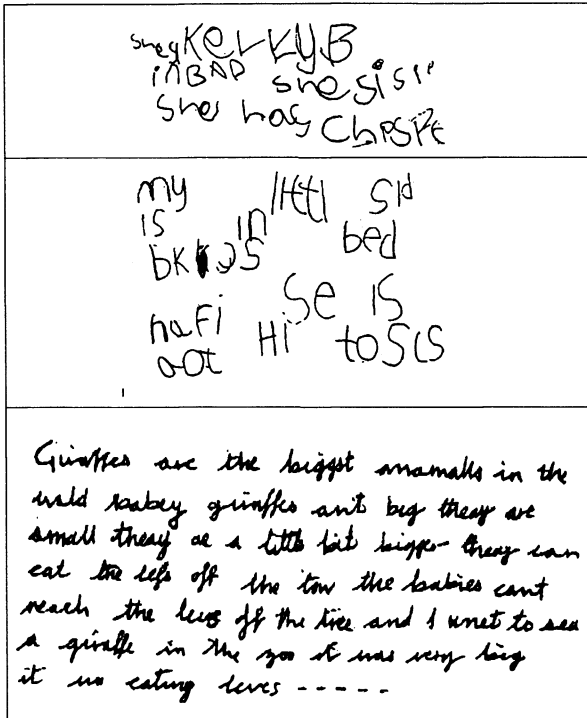 KerryB
inBAD she
she has
my littl
is in
bed
Se is
naFi Hi toSIS
Giraffes are the biggst anamalls in the
wald babey giraffes ant big theay are
small theay ar a little bit bigger theay can
eat the lefs off the tow the babies cant
reach the levs off the tree and I wnet to sea
a giraffe in the zoo it was very big
it was eating leves -----